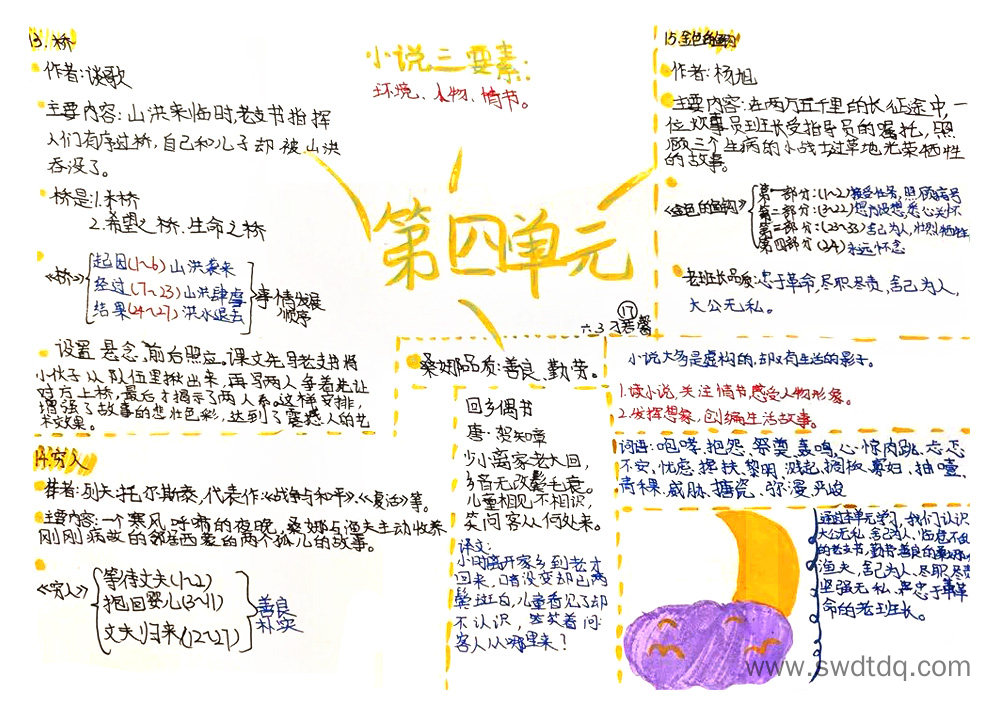 13.桥
作者:谈歌
主要内容:山洪来临时,老支书指挥
人们有序过桥,自己和儿子却被山洪
吞没了。
桥是:1.木桥
2.希望之桥.生命之桥
《桥》
起因(1~6)山洪袭来
经过(7~23)山洪肆虐
结果(24~27)洪水退去
事情发展
顺序
设置悬念,前后照应。课文先写老支书将
小伙子从队伍里揪出来,再写两人争着先让
对方上桥,最后才揭示了两人关系。这样安排,
增强了故事的悲壮色彩,达到了震撼人的艺
术效果。
小说三要素:
环境、人物、情节。
第四单元
17
六.3
15.金色的鱼钩
作者:杨旭
主要内容:在两万五千里的长征途中,一
位炊事员班长受指导员的嘱托,照
顾三个生病的小战士过草地光荣牺牲
的故事。
《金色的鱼钩》
第一部分:(1~2)接受任务,照顾病号
第二部分:(3~22)想方设想,悉心关怀
第三部分:(23~33)舍己为人,壮烈牺牲
第四部分(34)永远怀念
老班长品质:忠于革命,尽职尽责,舍己为人,
大公无私。
桑娜品质:善良、勤劳。
小说大多是虚构的,却又有生活的影子。
1.读小说,关注情节感受人物形象。
2.发挥想象,创编生活故事。
词语:咆哮、抱怨、祭奠、轰鸣、心惊肉跳、忐忑
不安、忧虑、搀扶、黎明、溅起、搁板、寡妇、抽噎、
青稞、威胁、搪瓷、弥漫、严峻
14.穷人
作者:列夫·托尔斯泰,代表作:《战争与和平》、《复活》等。
主要内容:一个寒风呼啸的夜晚,桑娜与渔夫主动收养
刚刚病故的邻居西蒙的两个孤儿的故事。
《穷人》
等待丈夫(1~2)
抱回婴儿(3~11)
丈夫归来(12~27)
善良
朴实
回乡偶书
唐·贺知章
少小离家老大回,
乡音无改鬓毛衰。
儿童相见不相识,
笑问客从何处来。
译文:
小时离开家乡到老才
回来,口音没变却已两
鬓斑白,儿童看见了却
不认识,笑笑着问:
客人从哪里来?
通过本单元学习,我们认识
大公无私,舍己为人,临危不乱
的老支书,勤劳善良的桑娜和
渔夫,舍己为人、尽职尽责
坚强无私、忠于革
命的老班长。
www.swdtdq.com